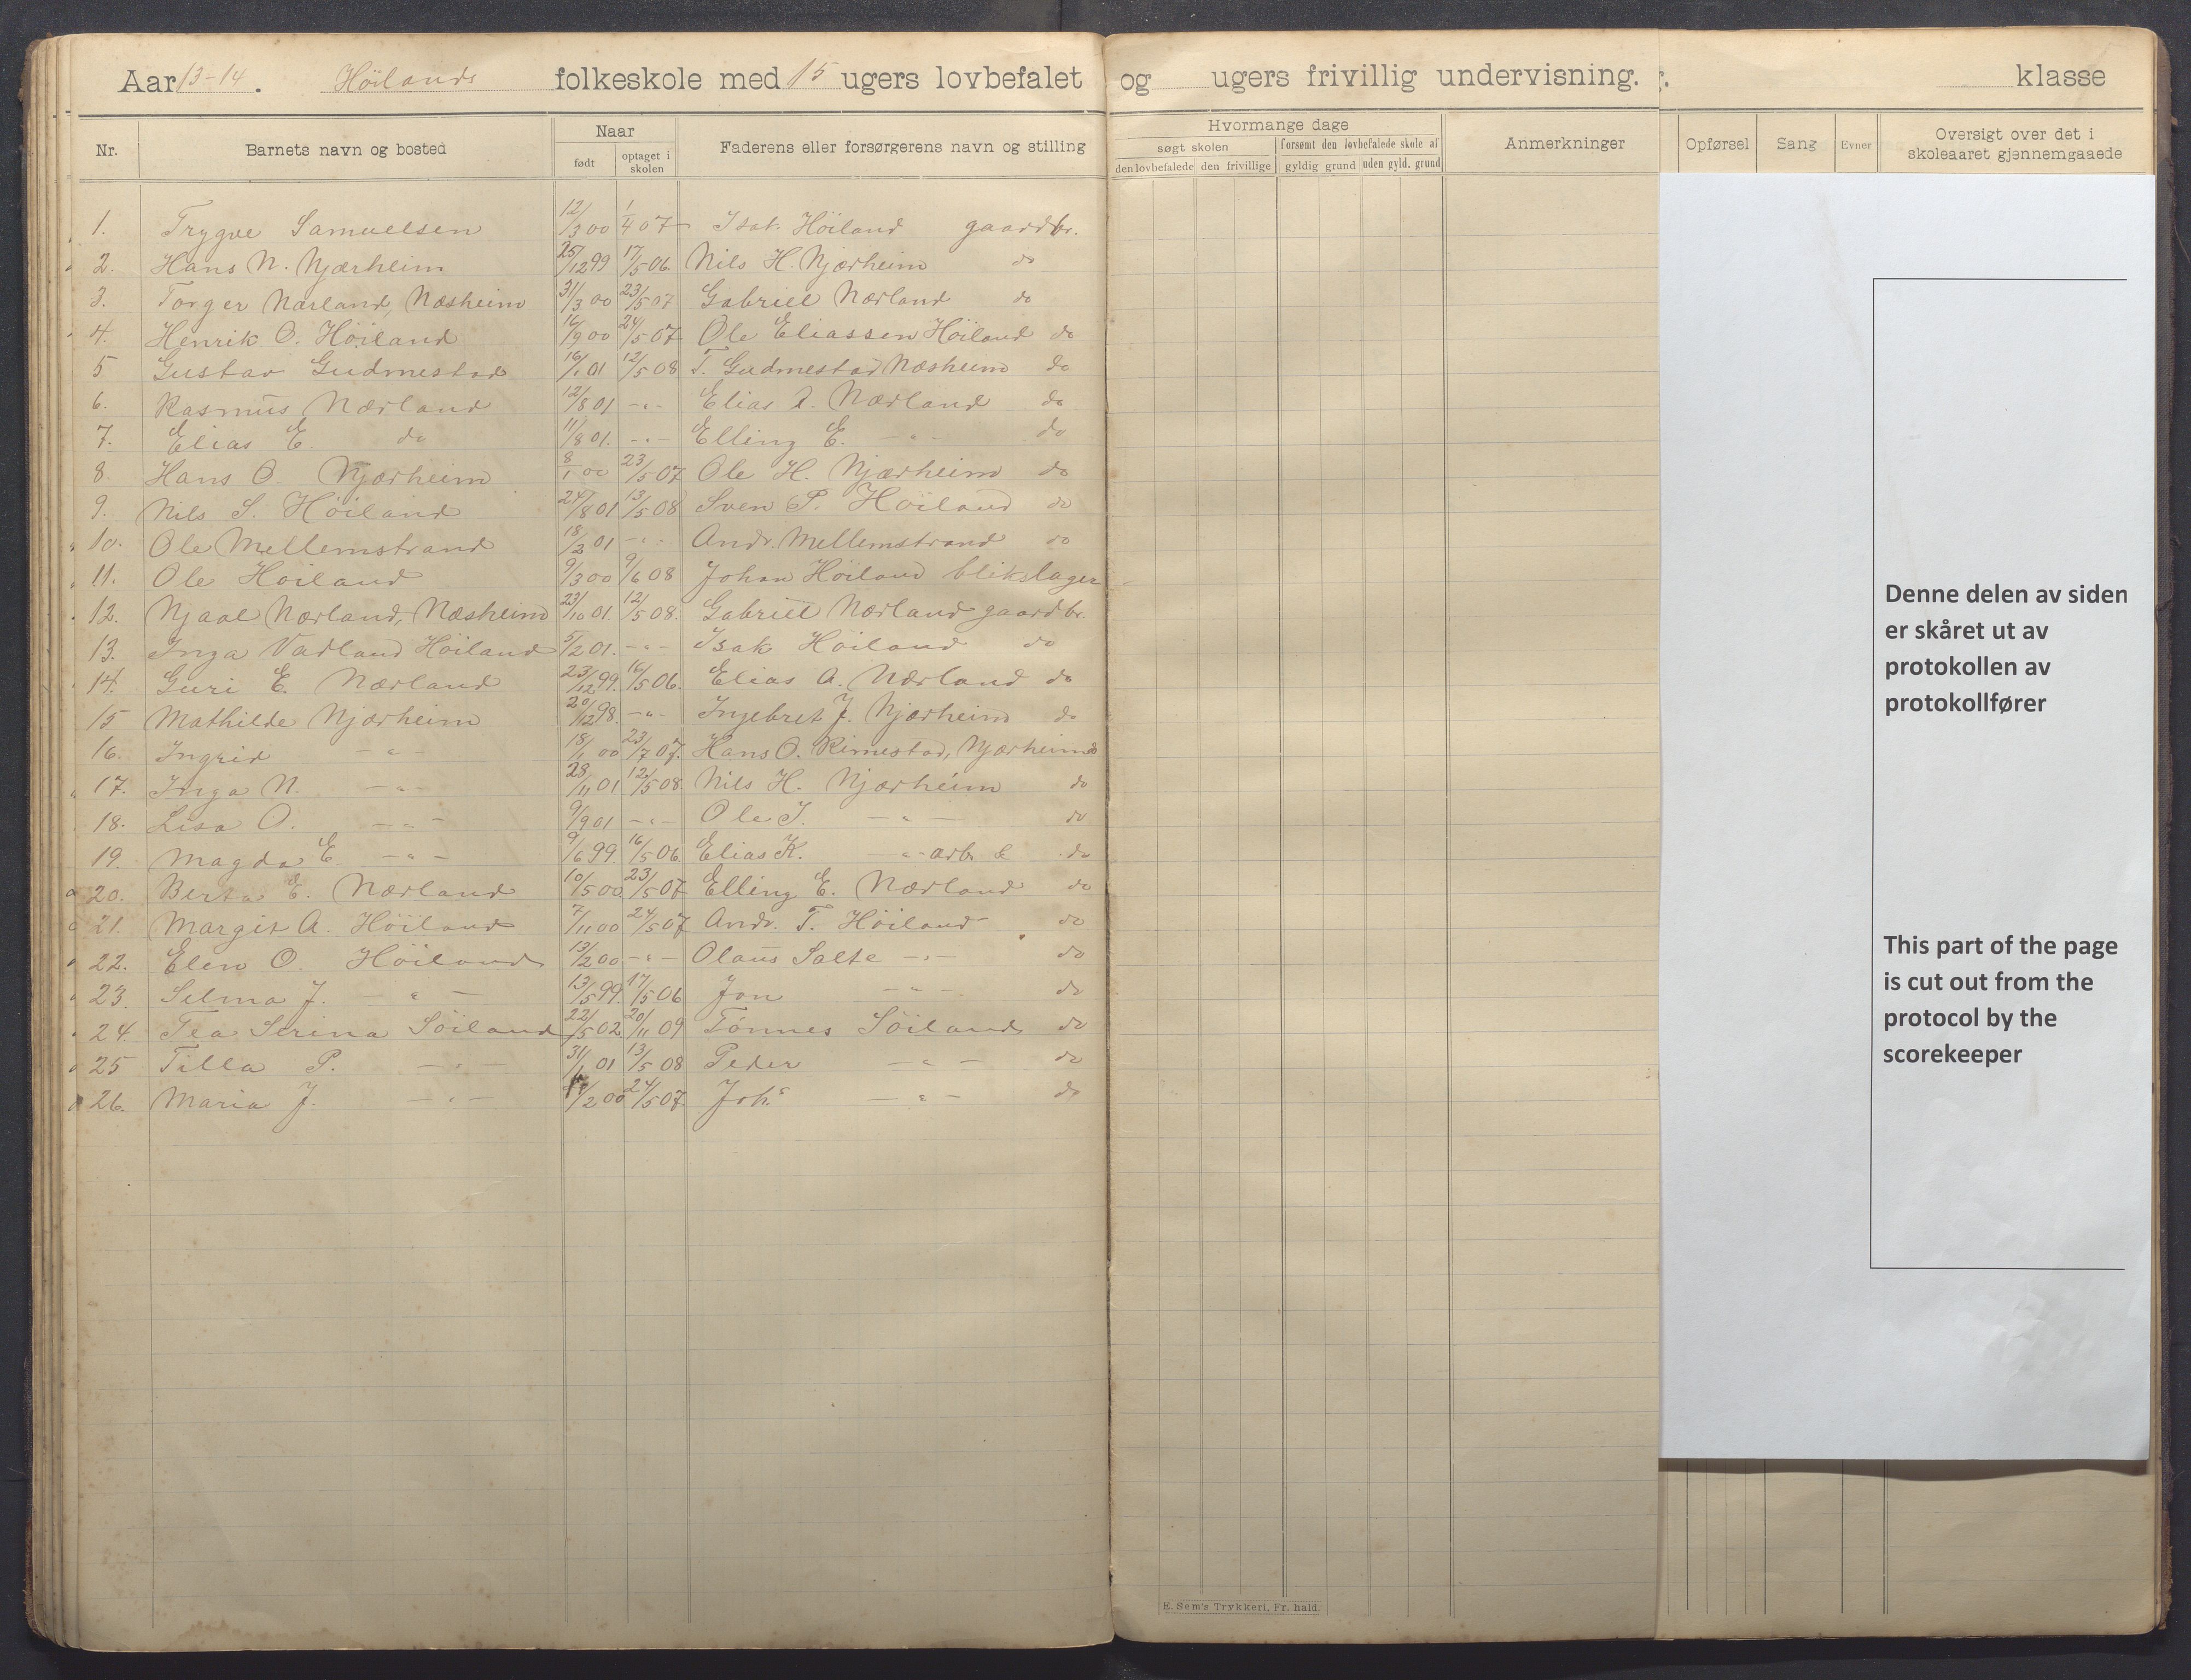 Aar 13-14. Höilands folkeskole med 15 ugers lovbefalet og ugers frivillig undervisning. klasse
Nr. Barnets navn og bosted Naar Faderens eller forsørgerens navn og stilling
født optaget i skolen
Hvormange dage Anmerkninger Opførsel Sang Evner Oversigt over det i skoleaaret gjennemgaaede
søgt skolen forsømt den lovbefalede skole af
den lovbefalede den frivillige gyldig grund uden gyld. grund
1. Trygve Samuelsen 12/3 00 1/4 07 Isak Höiland gaardbr.
2. Hans N. Njærheim 25/12 99 17/5 06. Nils H. Njærheim do
3. Torger Nærland, Næsheim 31/3 00 23/5 07 Gabriel Nærland do
4. Henrik O. Höiland 16/9 00 24/5 07 Ole Eliassen Höiland do
5 Gustav Gudmestad 16/1 01 12/5 08 T. Gudmestad Næsheim do
6. Rasmus Nærland 12/8 01 -"- Elias A. Nærland do
7. Elias E. do 11/8 01. -"- Elling E. -"- do
8. Hans O. Njærheim 8/1 00 23/5 07 Ole H. Njærheim do
9. Nils S. Höiland 24/8 01 13/5 08 Sven P. Höiland do
10. Ole Mellemstrand 18/2 01 -"- Andr. Mellemstrand do
11. Ole Höiland 9/3 00 9/6 08 Johan Höiland blikslager
12. Njaal Nærland, Næsheim 23/10 01. 12/5 08. Gabriel Nærland gaardbr.
13. Inga Varland Höiland 5/2 01. -"- Isak Höiland do
14. Guri E. Nærland 23/12 99. 16/5 06. Elias A. Nærland do
15 Mathilde Njærheim 20/12 98. -"- Ingebret J. Njærheim do
16. Ingrid -"- 18/1 00 23/7 07. Hans O. Rimestad, Njærheim do
17. Inga N. -"- 28/11 01 12/5 08. Nils H. Njærheim do
18. Lisa O. -"- 9/9 01 -"- Ole J. -"- do
19. Magda E. -"- 9/6 99. 16/5 06. Elias K. -"- arb. & do
20. Berta E. Nærland 10/5 00. 23/5 07 Elling E. Nærland do
21. Margit A. Höiland 7/11 00 24/5 07 Andr. T. Höiland do
22. Elen O. Höiland 13/2 00 -"- Olaus Salte -"- do
23. Selma J. -"- 13/5 99. 17/5 06 Jon -"- do
24. Tea Serina Söiland 22/5 02. 20/11 09 Tönnes Söiland do
25 Tilla P. -"- 31/1 01 13/5 08 Peder -"- do
26. Maria J. -"- /2 00 24/5 07. Joh.s -"- do
Denne delen av siden
er skåret ut av
protokollen av
protokollfører
This part of the page
is cut out from the
protocol by the
scorekeeper
E. Sem's Trykkeri, Fr. hald.